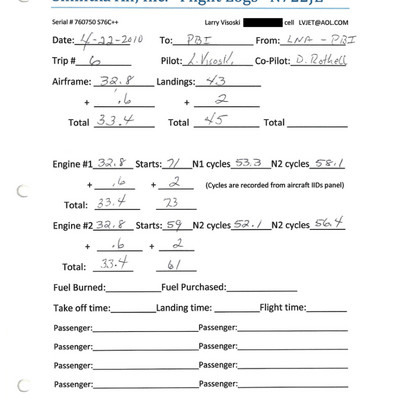 Serial # 760750 S76C++ Larry Visoski cell LVJET@AOL.COM
Date: 4-22-2010 To: PBI From: LNA - PBI
Trip # 6 Pilot: L. Visoski Co-Pilot: D. Rothell
Airframe: 32.8 Landings: 43
+ .6 + 2
Total 33.4 Total 45 Total
Engine #1 32.8 Starts: 71 N1 cycles 53.3 N2 cycles 58.1
+ .6 + 2 (Cycles are recorded from aircraft IIDs panel)
Total: 33.4 73
Engine #2 32.8 Starts: 59 N1 cycles 52.1 N2 cycles 56.4
+ .6 + 2
Total: 33.4 61
Fuel Burned: Fuel Purchased:
Take off time: Landing time: Flight time:
Passenger: Passenger:
Passenger: Passenger:
Passenger: Passenger:
Passenger: Passenger: